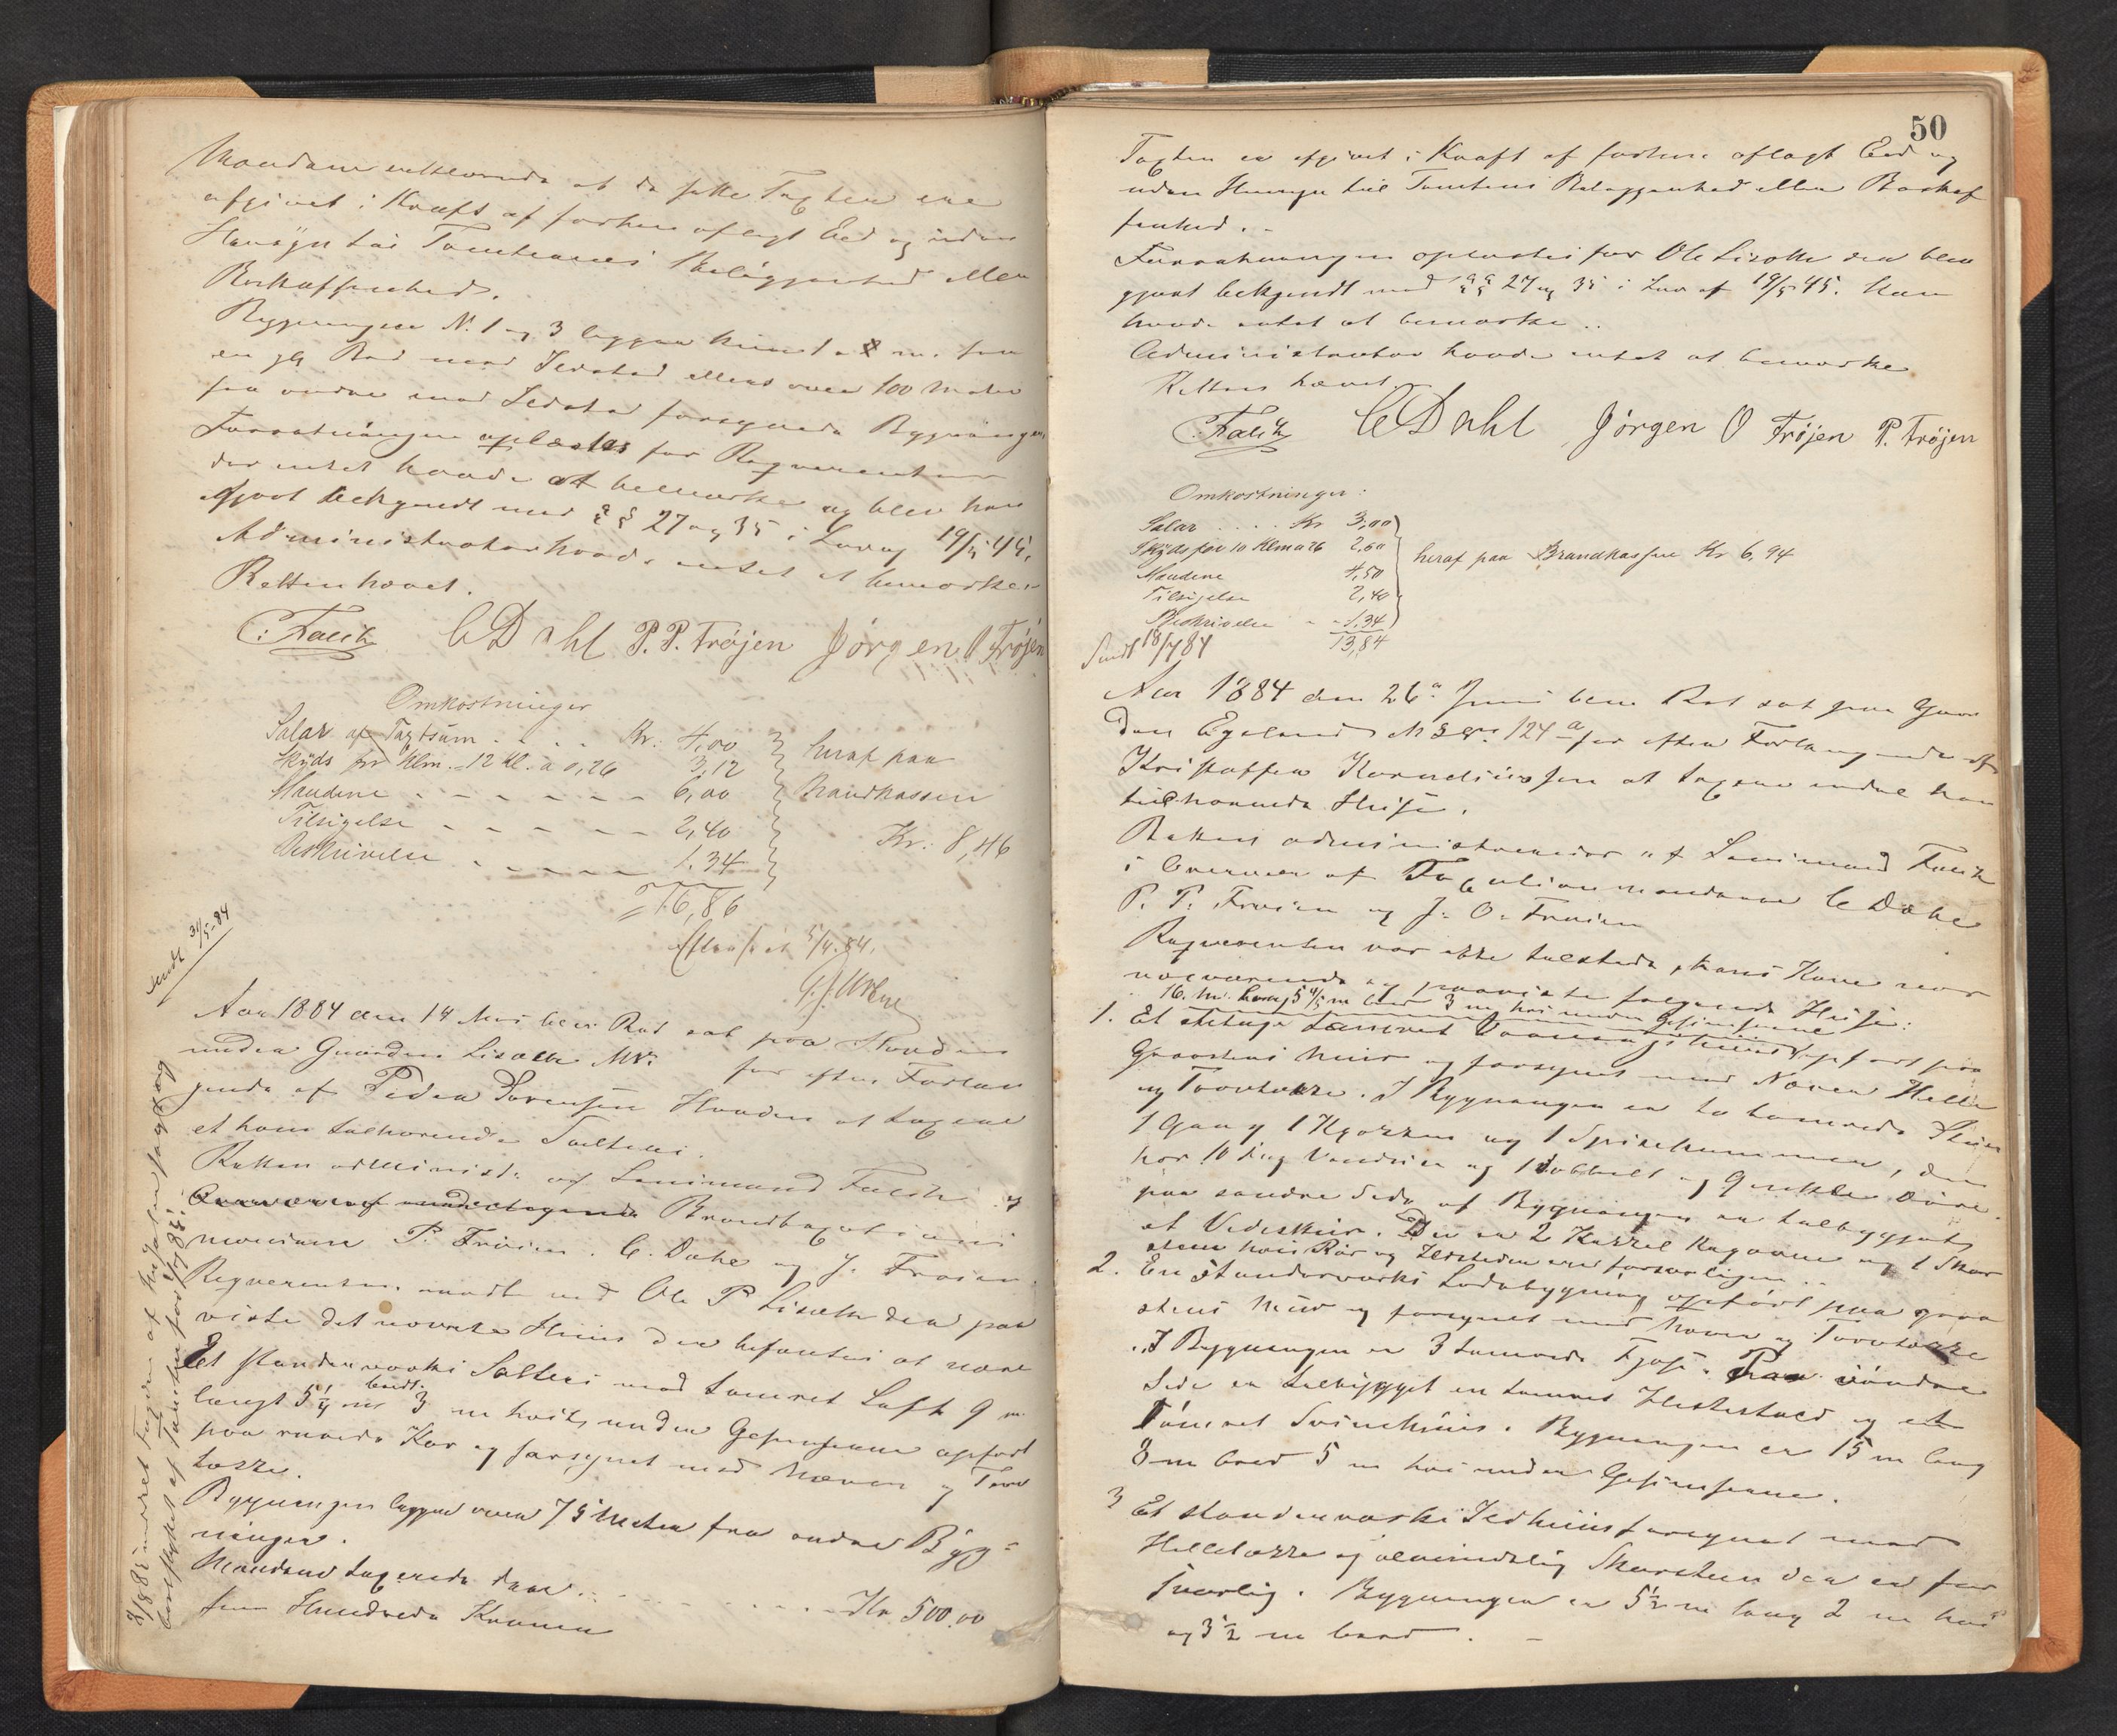 Mændene erklærede at de satte Taxten ene
afgivet i Kraft af forhen aflagt Eed og uden
Hensyn til Tomternes Beliggenhed eller
Beskaffenhed.
Bygningen N. 1 og 3 ligger kun 1 a 2 m. fra
en Bod med Ildsted ellers over 100 Meter
fra andre med Ildsted forsynede Bygninger.
Forretningen oplæstes for Reqverenten
der intet havde at bemærke og blev han
gjort bekjendt med §§ 27 og 35 i Lov af 19/8 45.
Administrator havde intet at bemærke.
Retten hævet.
C. Falck CDahl P.P. Frøjen Jørgen O Frøjen
Omkostninger
Salær af Taxtsum . . . . Kr. 4,00
Skyds pr Klm. - 12 Kl. a 0,26 3,12
Mændene - - - - - - 6,00
Tilsigelse - - - - - 2,40
Beskrivelse - - - - - 1,34
16,86
heraf paa
Brandkassen
Kr: 8,46
Efterset 5/4.84.
sendt 31/5-84
Aar 1884 den 14 Mai blev Ret sat paa Stranden
under Gaarden Lisæth Mr. for efter Forlan
gende af Peder Sørensen Stranden at taxere
et ham tilhørende Salteri.
Retten administr. af Lensmand Falck og
Overvær af undertegnede Brandtaxations
mændene P. Frøien. C. Dahl og J. Frøien.
Reqverenten mødte ved Ole P Lisæth der paa
viste det nævnte Huus der befantes at være
Et standerværks Salteri med tømret Loft 9 m
langt 5 1/4 m bredt 3 m høit under Gesimserne opført
paa murede Kar og forsynet med Næver og Torv
tække.
Bygningen ligger over 75 Meter fra andre Byg=
ninger.
Mændene taxerede den
fem Hundrede Kroner - - - - - Kr. 500.00
50
Taxten er afgivet i Kraft af forhen aflagt Eed og
uden Hensyn til Tomtens Beliggenhed eller Beskaf
fenhed. -
Forretningen oplæstes for Ole Lisæth der blev
gjort bekjendt med §§ 27 og 35 i Lov af 19/8 45. Han
havde intet at bemærke.
Administrator havde intet at bemærke
Retten hævet.
C. Falck CDahl Jørgen O Frøjen P. Frøjen
Omkostninger:
Salær . . . . Kr 3,00
Skyds for 10 Klm a 26 2,60
Mændene 4,50
Tilsigelse 2,40
Beskrivelse - - 1,34
13,84
heraf paa Brandkassen Kr 6,94
Sendt 18/7 84
Aar 1884 den 26de Juni blev Ret sat paa Gaar
den Egeland M Gr. 124 a for efter Forlangende af
Kristoffer Korneliussen at taxere endel ham
tilhørende Huse.
Retten administreredes af Lensmand Falck
i Overvær af Taxationsmændene C Dahl
P. P. Frøien og J. O. Frøien
Reqverenten var ikke tilstede, hans Kone var
nærværende og paaviste følgende Huse:
16. m. lang 5 4/5 m bred 3 m høi under Gesimserne
1. Et etetages tømret Vaaningshuus opført paa
Graastens Muur og forsynet med Næver Helle
og Torvtække. I Bygningen er to tømrede Stuer
1 Gang 1 Kjøkken og 1 Spisekammer, den
har 10 Fag Vinduer og 1 dobbelt og 9 enkle Døre.
paa søndre Side af Bygningen er tilbygget
et Vedeskur. Der er 2 Kakkelovne og 1 Skor
sten hvis Rør og Ildsteder ere forsvarligen ..
2. En Standerværks Ladebygning opført paa graa
stens Muur og forsynet med Næver og Torvtække
I Bygningen er 3 tømrede Fjøse. Paa søndre
Side er tilbygget en tømret Hestestald og et
tømret Svinehuus. Bygningen er 15 m lang
8 m bred 5 m høi under Gesimserne.
3 Et standerværks Ildhuus forsynet med
Helletække og almindelig Skorsten der er for
svarlig. Bygningen er 5 1/2 m lang 2 m høi
og 3 1/2 m bred. -